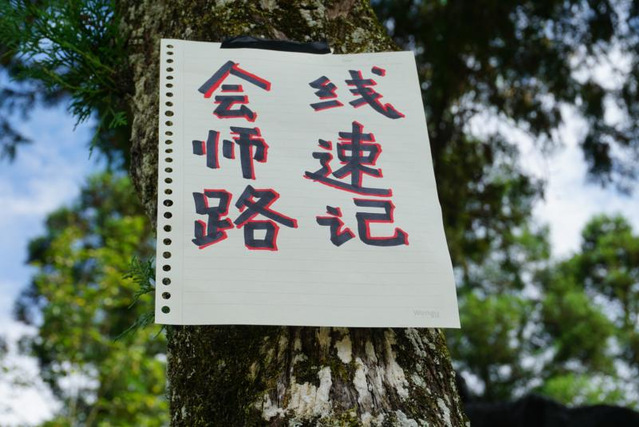 会师路
线速记